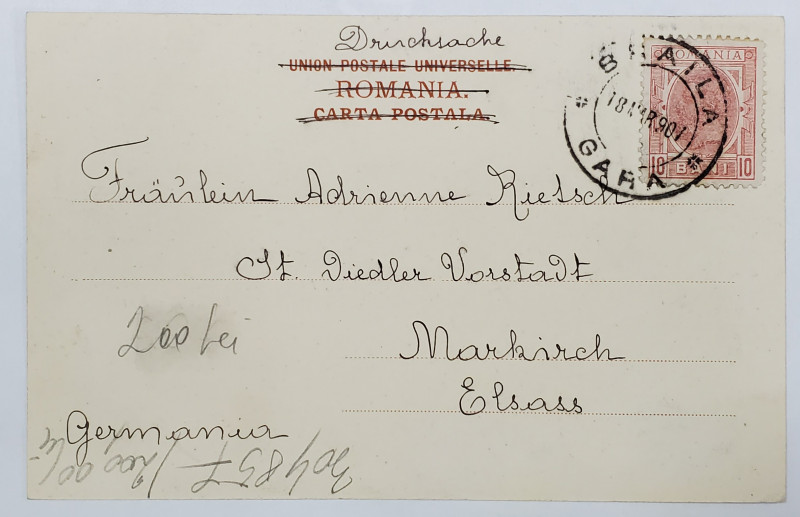 Drucksache
UNION POSTALE UNIVERSELLE.
ROMANIA.
CARTA POSTALA.
ROMANIA
10 BANI 10
BRAILA
18 MAR 901
GARA
Fräulein Adrienne Rietsch
St. Diedler Vorstadt
Markirch
Elsass
Germania
200 lei